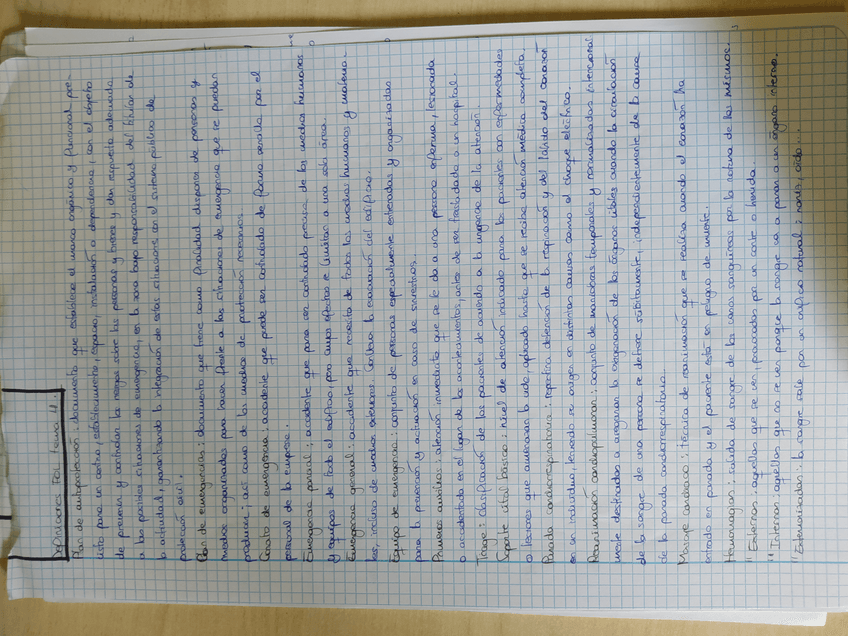 Definiciones FOL tema 11.
Plan de autoprotección: documento que establece el marco orgánico y funcional pre-
visto para un centro, establecimiento, espacio, instalación o dependencia, con el objeto
de prevenir y controlar los riesgos sobre las personas y bienes y dar respuesta adecuada
a las posibles situaciones de emergencia, en la zona bajo responsabilidad del titular de
la actividad, garantizando la integración de estas situaciones con el sistema público de
protección civil.
Plan de emergencias: documento que tiene como finalidad disponer de personas y
medios organizados para hacer frente a las situaciones de emergencia que se puedan
producir, así como de los medios de protección necesarios.
Conato de emergencia: accidente que puede ser controlado de forma sencilla por el
personal de la empresa.
Emergencia parcial: accidente que para ser controlado precisa de los medios humanos
y equipos de todo el edificio, pero cuyos efectos se limitan a una sola área.
Emergencia general: accidente que necesita de todos los medios humanos y materia-
les, incluso de medios exteriores. Conlleva la evacuación del edificio.
Equipo de emergencia: conjunto de personas especialmente entrenadas y organizadas
para la prevención y actuación en caso de siniestros.
Primeros auxilios: atención inmediata que se le da a una persona enferma, lesionada
o accidentada en el lugar de los acontecimientos, antes de ser trasladada a un hospital.
Triage: clasificación de los pacientes de acuerdo a la urgencia de la atención.
Soporte vital básico: nivel de atención indicado para los pacientes con enfermedades
o lesiones que amenazan la vida, aplicado hasta que se reciba atención médica completa.
Parada cardiorrespiratoria: repentina detención de la respiración y del latido del corazón
en un individuo, teniendo su origen en distintas causas como el choque eléctrico.
Reanimación cardiopulmonar: conjunto de maniobras temporales y normalizadas internacional
mente destinadas a asegurar la oxigenación de los órganos vitales cuando la circulación
de la sangre de una persona se detiene súbitamente, independientemente de la causa
de la parada cardiorrespiratoria.
Masaje cardiaco: técnica de reanimación que se realiza cuando el corazón ha
entrado en parada y el paciente está en peligro de muerte.
Hemorragias: salida de sangre de los vasos sanguíneos por la rotura de los mismos.
" Externas: aquellas que se ven, provocadas por un corte o herida.
" Internas: aquellas que no se ven porque la sangre va a parar a un órgano interno.
" Exteriorizadas: la sangre sale por un orificio natural: nariz, oído...